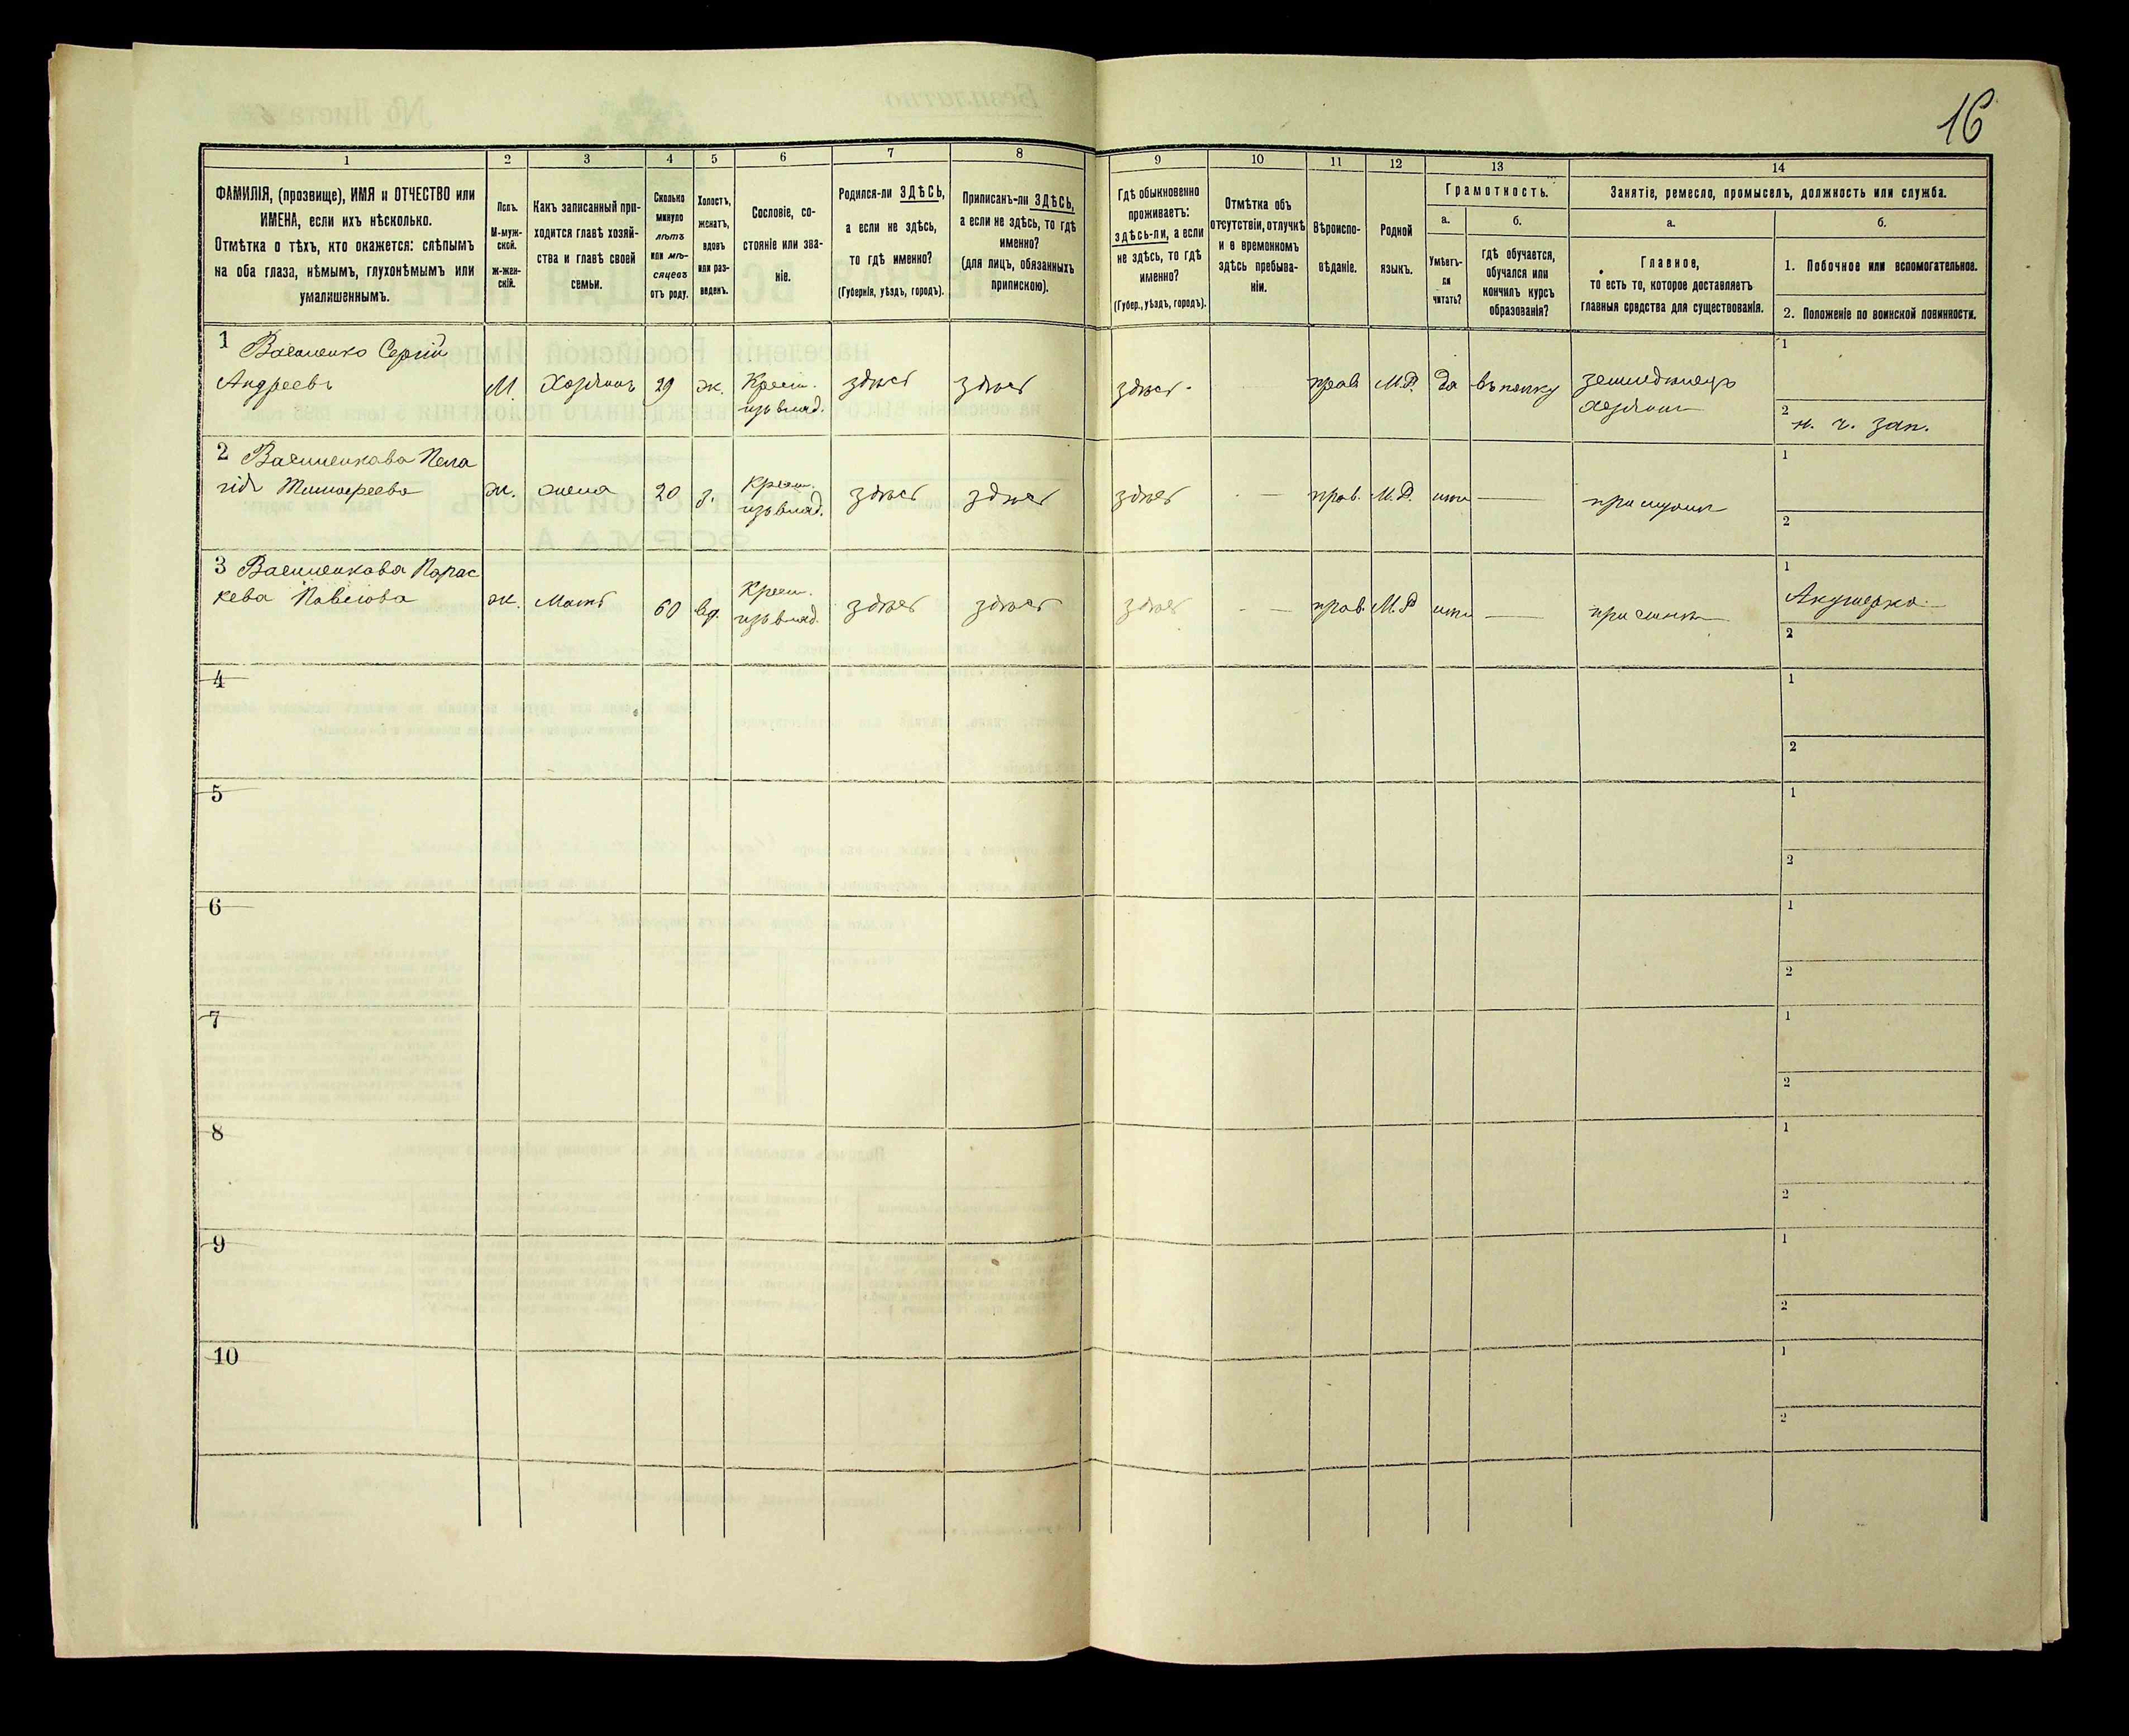 16
1
2
3
4
5
6
7
8
9
10
11
12
13
14
ФАМИЛІЯ, (прозвище), ИМЯ и ОТЧЕСТВО или
ИМЕНА, если ихъ нѣсколько.
Отмѣтка о тѣхъ, кто окажется: слѣпымъ
на оба глаза, нѣмымъ, глухонѣмымъ или
умалишеннымъ.
Полъ.
М-муж-
ской.
ж-жен-
скій.
Какъ записанный при-
ходится главѣ хозяй-
ства и главѣ своей
семьи.
Сколько
минуло
лѣтъ
или мѣ-
сяцевъ
отъ роду.
Холостъ,
женатъ,
вдовъ
или раз-
веденъ.
Сословіе, со-
стояніе или зва-
ніе.
Родился-ли ЗДѢСЬ,
а если не здѣсь,
то гдѣ именно?
(Губернія, уѣздъ, городъ).
Приписанъ-ли ЗДѢСЬ,
а если не здѣсь, то гдѣ
именно?
(для лицъ, обязанныхъ
припискою).
Гдѣ обыкновенно
проживаетъ:
здѣсь-ли, а если
не здѣсь, то гдѣ
именно?
(Губер., уѣздъ, городъ).
Отмѣтка объ
отсутствіи, отлучкѣ
и о временномъ
здѣсь пребыва-
ніи.
Вѣроиспо-
вѣданіе.
Родной
языкъ.
Грамотность.
а.
Умѣетъ-
ли
читать?
б.
гдѣ обучается,
обучался или
кончилъ курсъ
образованія?
Занятіе, ремесло, промыселъ, должность или служба.
а.
Главное,
то есть то, которое доставляетъ
главныя средства для существованія.
б.
1. Побочное или вспомогательное.
2. Положеніе по воинской повинности.
1 Василенко Сергій
Андреевъ
М. Хозяинъ 29 ж. Крест. здѣсь здѣсь здѣсь прав М.Р. Да въ полку земледѣлецъ
изъ влад. хозяинъ
1
2 н. ч. зап.
2 Василенкова Пела
гія Тимофеева ж. жена 20 з. Крест. здѣсь здѣсь здѣсь — прав. М.Р. — при мужѣ
изъ влад.
1
2
3 Василенкова Парас
кева Павлова ж. Мать 60 вд. Крест. здѣсь здѣсь здѣсь — прав М.Р — при сынѣ
изъ влад.
1 Акушерка
2
4
1
2
5
1
2
6
1
2
7
1
2
8
1
2
9
1
2
10
1
2